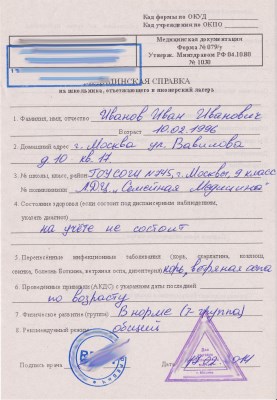 Код формы по ОКУД
Код учреждения по ОКПО
Медицинская документация
Форма № 079/у
Утверж. Минздравом РФ 04.10.80
№ 1030
МЕДИЦИНСКАЯ СПРАВКА
на школьника, отъезжающего в пионерский лагерь
1. Фамилия, имя, отчество Иванов Иван Иванович
Возраст 10.02.1996
2. Домашний адрес г. Москва ул. Вавилова
д 10 кв. 17
3. № школы, класс, район ГОУСОШ №145, г. Москве, 9 класс
№ поликлиники "Семейная Медицина"
4. Состояние здоровья (если состоит под диспансерным наблюдением,
указать диагноз)
на учёте не состоит
5. Перенесённые инфекционные заболевания (корь, скарлатина, коклюш,
свинка, болезнь Боткина, ветряная оспа, дизентерия) корь, ветряная оспа
6. Проведенные прививки (АКДС) с указанием даты последней
по возрасту
7. Физическое развитие (группа) В норме (I- группа)
8. Рекомендуемый режим общий
Подпись врача
Дата 19.02 2014